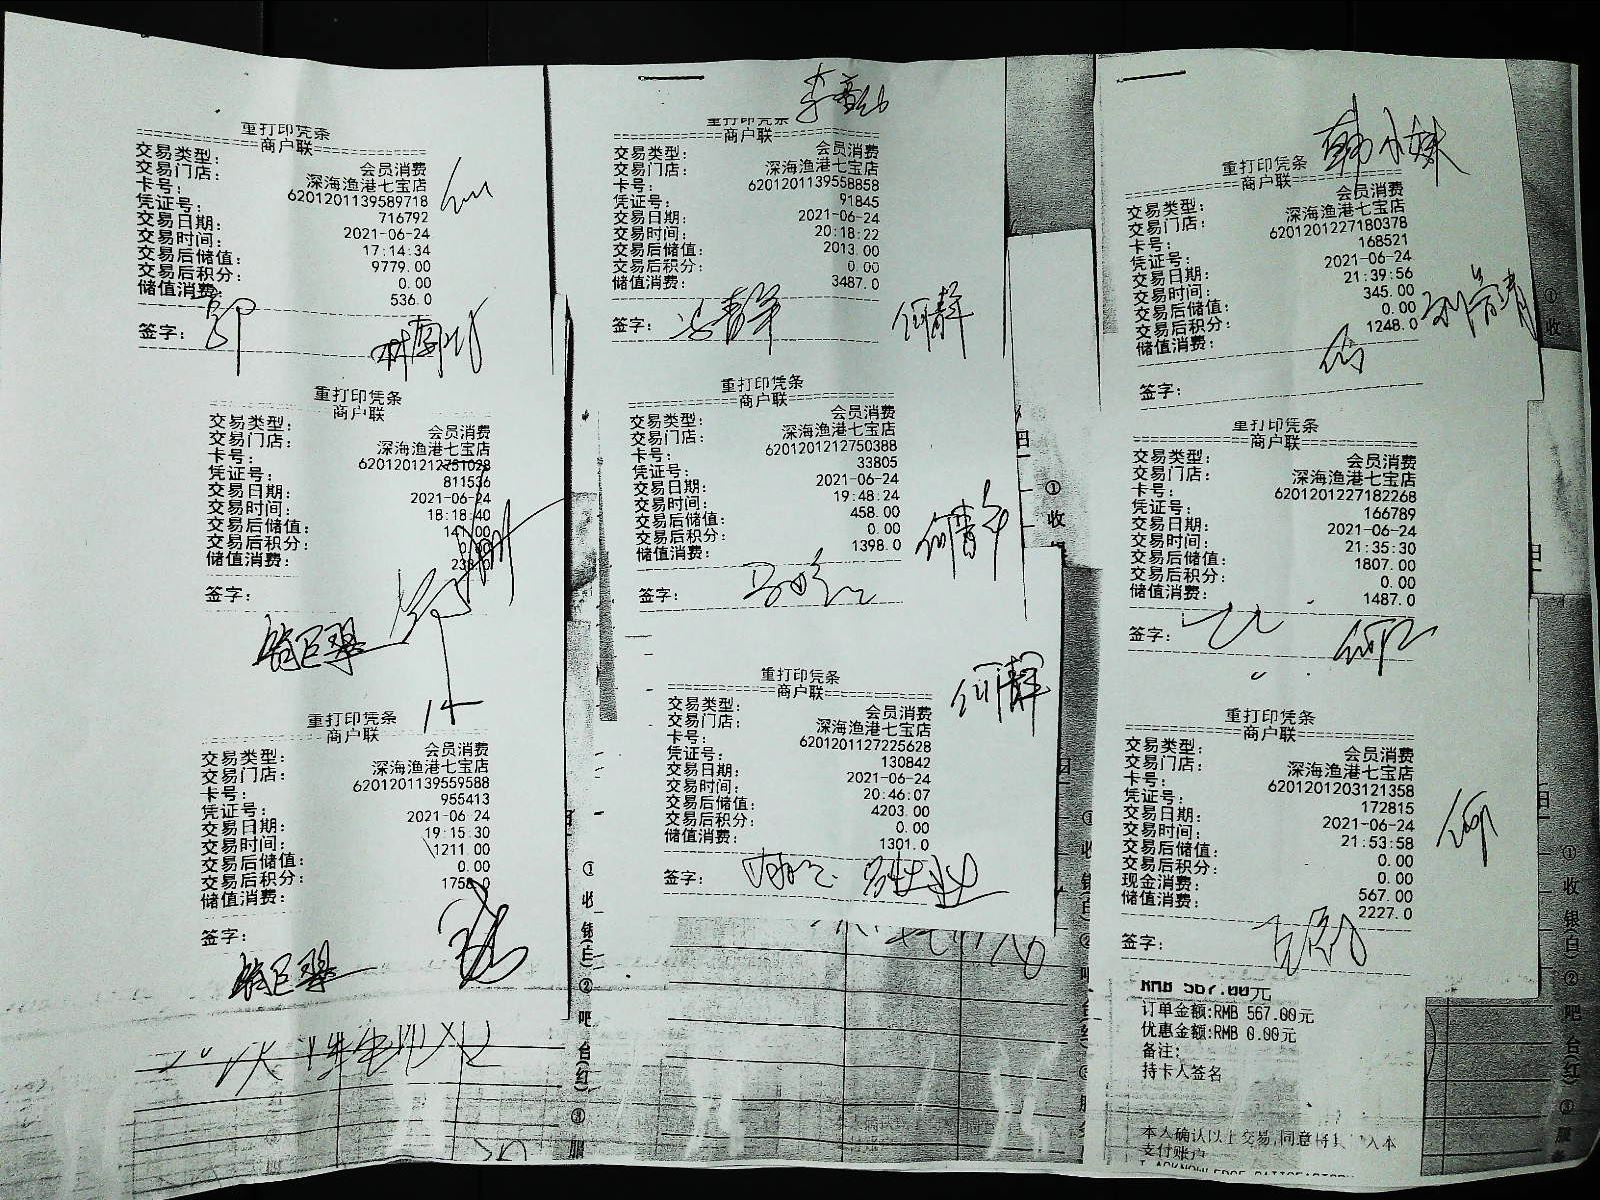 重打印凭条
商户联
交易类型: 会员消费
交易门店: 深海渔港七宝店
卡号: 6201201139589718
凭证号: 716792
交易日期: 2021-06-24
交易时间: 17:14:34
交易后储值: 9779.00
交易后积分: 0.00
储值消费: 536.0
签字:
重打印凭条
商户联
交易类型: 会员消费
交易门店: 深海渔港七宝店
卡号: 6201201212751028
凭证号: 811536
交易日期: 2021-06-24
交易时间: 18:18:40
交易后储值: 141.00
交易后积分:
储值消费:
签字:
重打印凭条
商户联
交易类型: 会员消费
交易门店: 深海渔港七宝店
卡号: 6201201139559588
凭证号: 955413
交易日期: 2021-06-24
交易时间: 19:15:30
交易后储值: 1211.00
交易后积分: 0.00
储值消费: 1758.0
签字:
重打印凭条
商户联
交易类型: 会员消费
交易门店: 深海渔港七宝店
卡号: 6201201139558858
凭证号: 91845
交易日期: 2021-06-24
交易时间: 20:18:22
交易后储值: 2013.00
交易后积分: 0.00
储值消费: 3487.0
签字: 何静
重打印凭条
商户联
交易类型: 会员消费
交易门店: 深海渔港七宝店
卡号: 6201201212750388
凭证号: 33805
交易日期: 2021-06-24
交易时间: 19:48:24
交易后储值: 458.00
交易后积分: 0.00
储值消费: 1398.0
何静
签字:
何静
重打印凭条
商户联
交易类型: 会员消费
交易门店: 深海渔港七宝店
卡号: 6201201127225628
凭证号: 130842
交易日期: 2021-06-24
交易时间: 20:46:07
交易后储值: 4203.00
交易后积分: 0.00
储值消费: 1301.0
签字:
韩小妹
重打印凭条
商户联
交易类型: 会员消费
交易门店: 深海渔港七宝店
卡号: 6201201227180378
凭证号: 168521
交易日期: 2021-06-24
交易时间: 21:39:56
交易后储值: 345.00
交易后积分: 0.00
储值消费: 1248.0
签字:
重打印凭条
商户联
交易类型: 会员消费
交易门店: 深海渔港七宝店
卡号: 6201201227182268
凭证号: 166789
交易日期: 2021-06-24
交易时间: 21:35:30
交易后储值: 1807.00
交易后积分: 0.00
储值消费: 1487.0
签字:
重打印凭条
商户联
交易类型: 会员消费
交易门店: 深海渔港七宝店
卡号: 6201201203121358
凭证号: 172815
交易日期: 2021-06-24
交易时间: 21:53:58
交易后储值: 0.00
交易后积分: 0.00
现金消费: 567.00
储值消费: 2227.0
签字:
RMB 567.00元
订单金额:RMB 567.00元
优惠金额:RMB 0.00元
备注:
持卡人签名
本人确认以上交易,同意将其 入本
支付账户
①收银(白)②吧台(红)③服
①收
①收
①收银(白)②吧台(红)③服